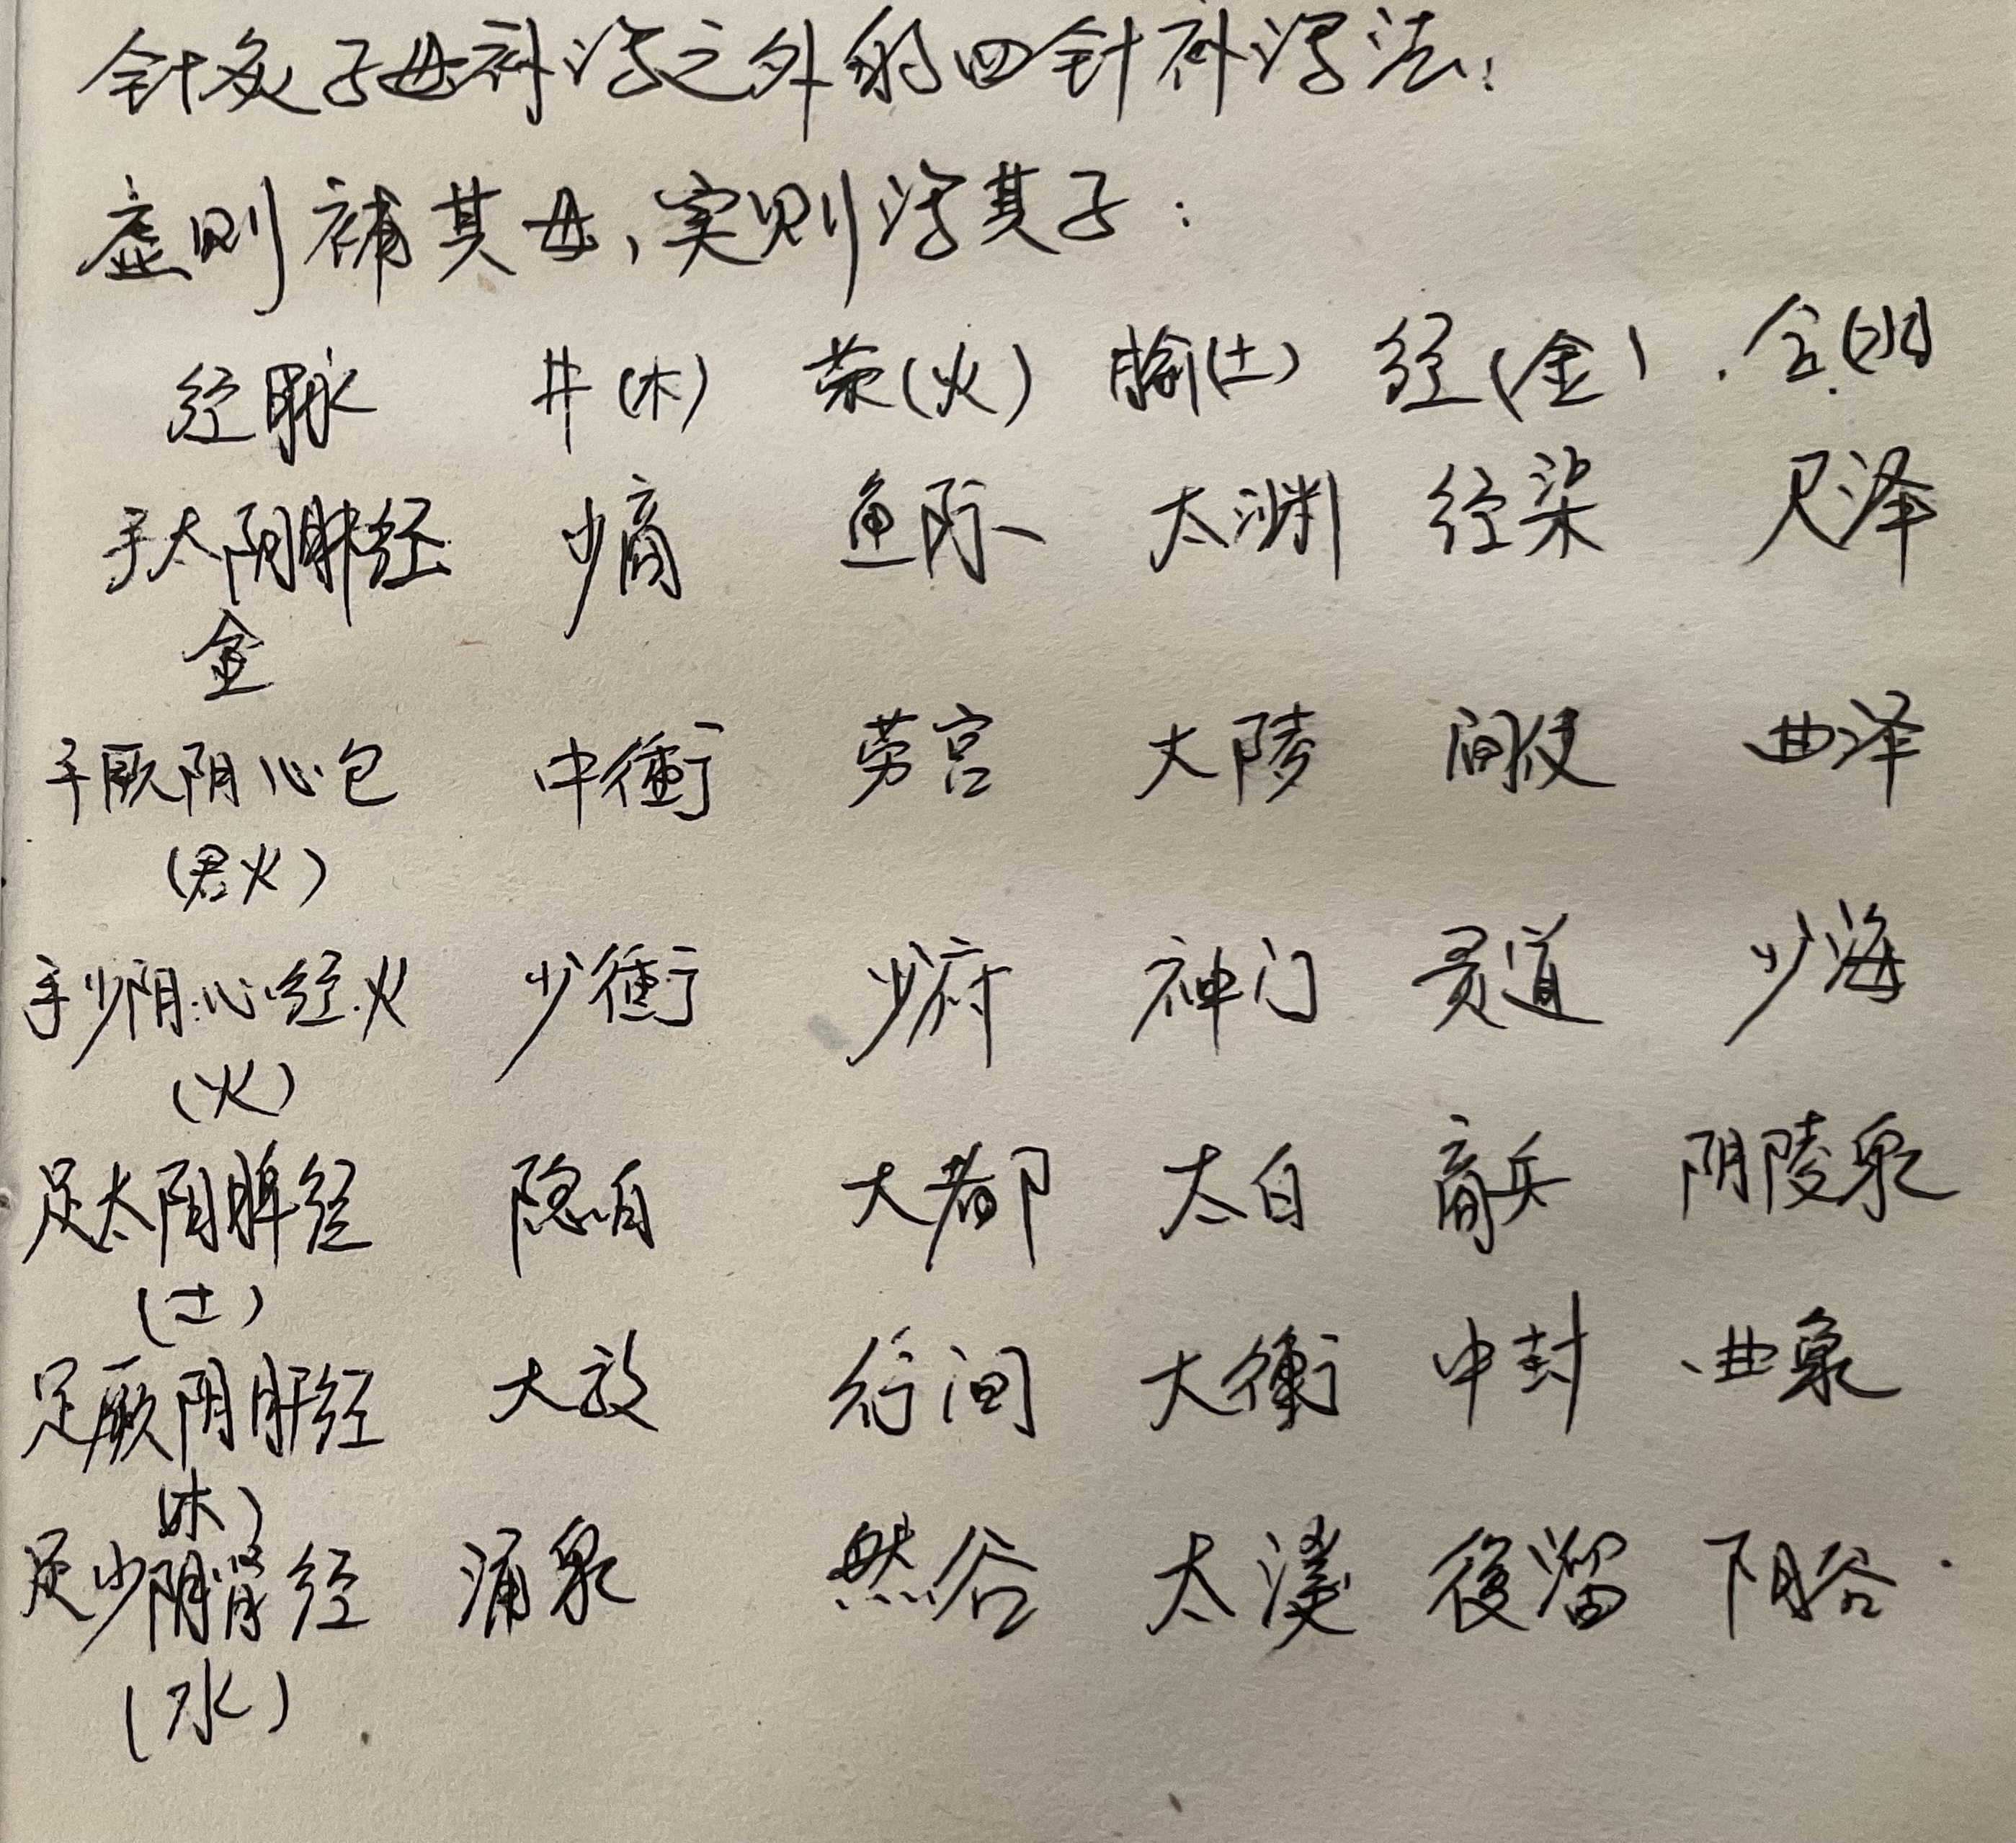 针灸子母补泻之外的四针补泻法:
虚则補其母,实则泻其子:
经脉 井(木) 荥(火) 腧(土) 经(金) 合(水)
手太阴肺经 少商 鱼际 太渊 经渠 尺泽
金
手厥阴心包 中衝 劳宫 大陵 间使 曲泽
(君火)
手少阴心经火 少衝 少府 神门 灵道 少海
(火)
足太阴脾经 隐白 大都 太白 商丘 阴陵泉
(土)
足厥阴肝经 大敦 行间 太衝 中封 曲泉
(木)
足少阴肾经 涌泉 然谷 太溪 復溜 阴谷
(水)